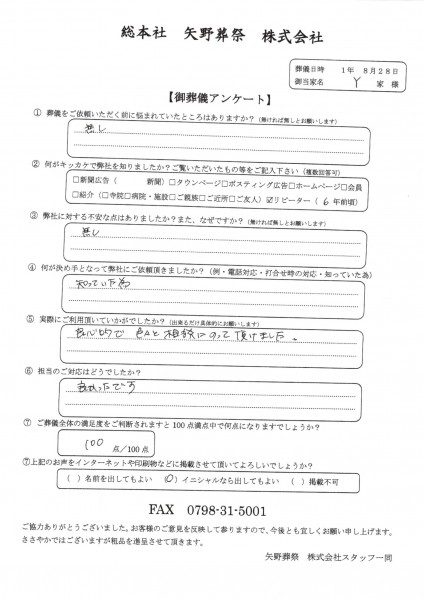 総本社 矢野葬祭 株式会社
葬儀日時 1年 8月28日
御当家名 Y 家 様
【御葬儀アンケート】
① 葬儀をご依頼いただく前に悩まれていたところはありますか？(無ければ無しとお願いします)
無し
② 何がキッカケで弊社を知りましたか？ご覧いただいたもの等をご記入下さい(複数回答可)
□新聞広告( 新聞)□タウンページ□ポスティング広告□ホームページ□会員
□紹介(□寺院□病院・施設□ご親族□ご近所□ご友人)☑リピーター(6年前頃)
③ 弊社に対する不安な点はありましたか？また、なぜですか？(無ければ無しとお願いします)
無し
④ 何が決め手となって弊社にご依頼頂きましたか？(例・電話対応・打合せ時の対応・知っていた為)
知っていた為
⑤ 実際にご利用頂いていかがでしたか？(出来るだけ具体的にお願いします)
良心的で 色々と相談にのって頂けました。
⑥ 担当のご対応はどうでしたか？
良かったです
⑦ ご葬儀全体の満足度をご判断されますと100点満点中で何点になりますでしょうか？
100 点/100点
⑦上記のお声をインターネットや印刷物などに掲載させて頂いてよろしいでしょうか？
( )名前を出してもよい (○)イニシャルなら出してもよい ( )掲載不可
FAX 0798-31-5001
ご協力ありがとうございました。お客様のご意見を反映して参りますので、今後とも宜しくお願い申し上げます。
ささやかではございますが粗品を進呈させて頂きます。
矢野葬祭 株式会社スタッフ一同